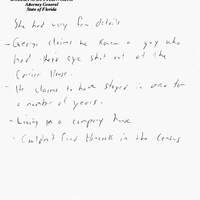 Attorney General
State of Florida
She had very few details
- George claims he knew a guy who
had there eye shot out at the
House.
- He claims to have stayed in area for
a number of years.
- Living in a company house
- Couldn't find in the census